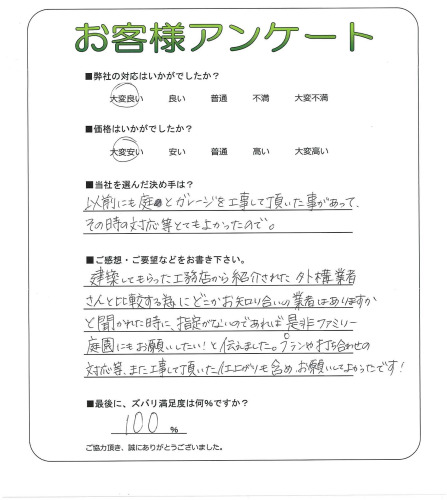 お客様アンケート
■弊社の対応はいかがでしたか？
大変良い 良い 普通 不満 大変不満
■価格はいかがでしたか？
大変安い 安い 普通 高い 大変高い
■当社を選んだ決め手は？
以前にも庭とガレージを工事して頂いた事があって、
その時の対応等とてもよかったので。
■ご感想・ご要望などをお書き下さい。
建築してもらった工務店から紹介された外構業者
さんと比較する為にどこかお知り合いの業者はありますか
と聞かれた時に、指定がないのであれば是非ファミリー
庭園にもお願いしたい！と伝えました。プランや打ち合わせの
対応等、また工事して頂いた仕上がりも含め、お願いしてよかったです！
■最後に、ズバリ満足度は何％ですか？
100 ％
ご協力頂き、誠にありがとうございました。